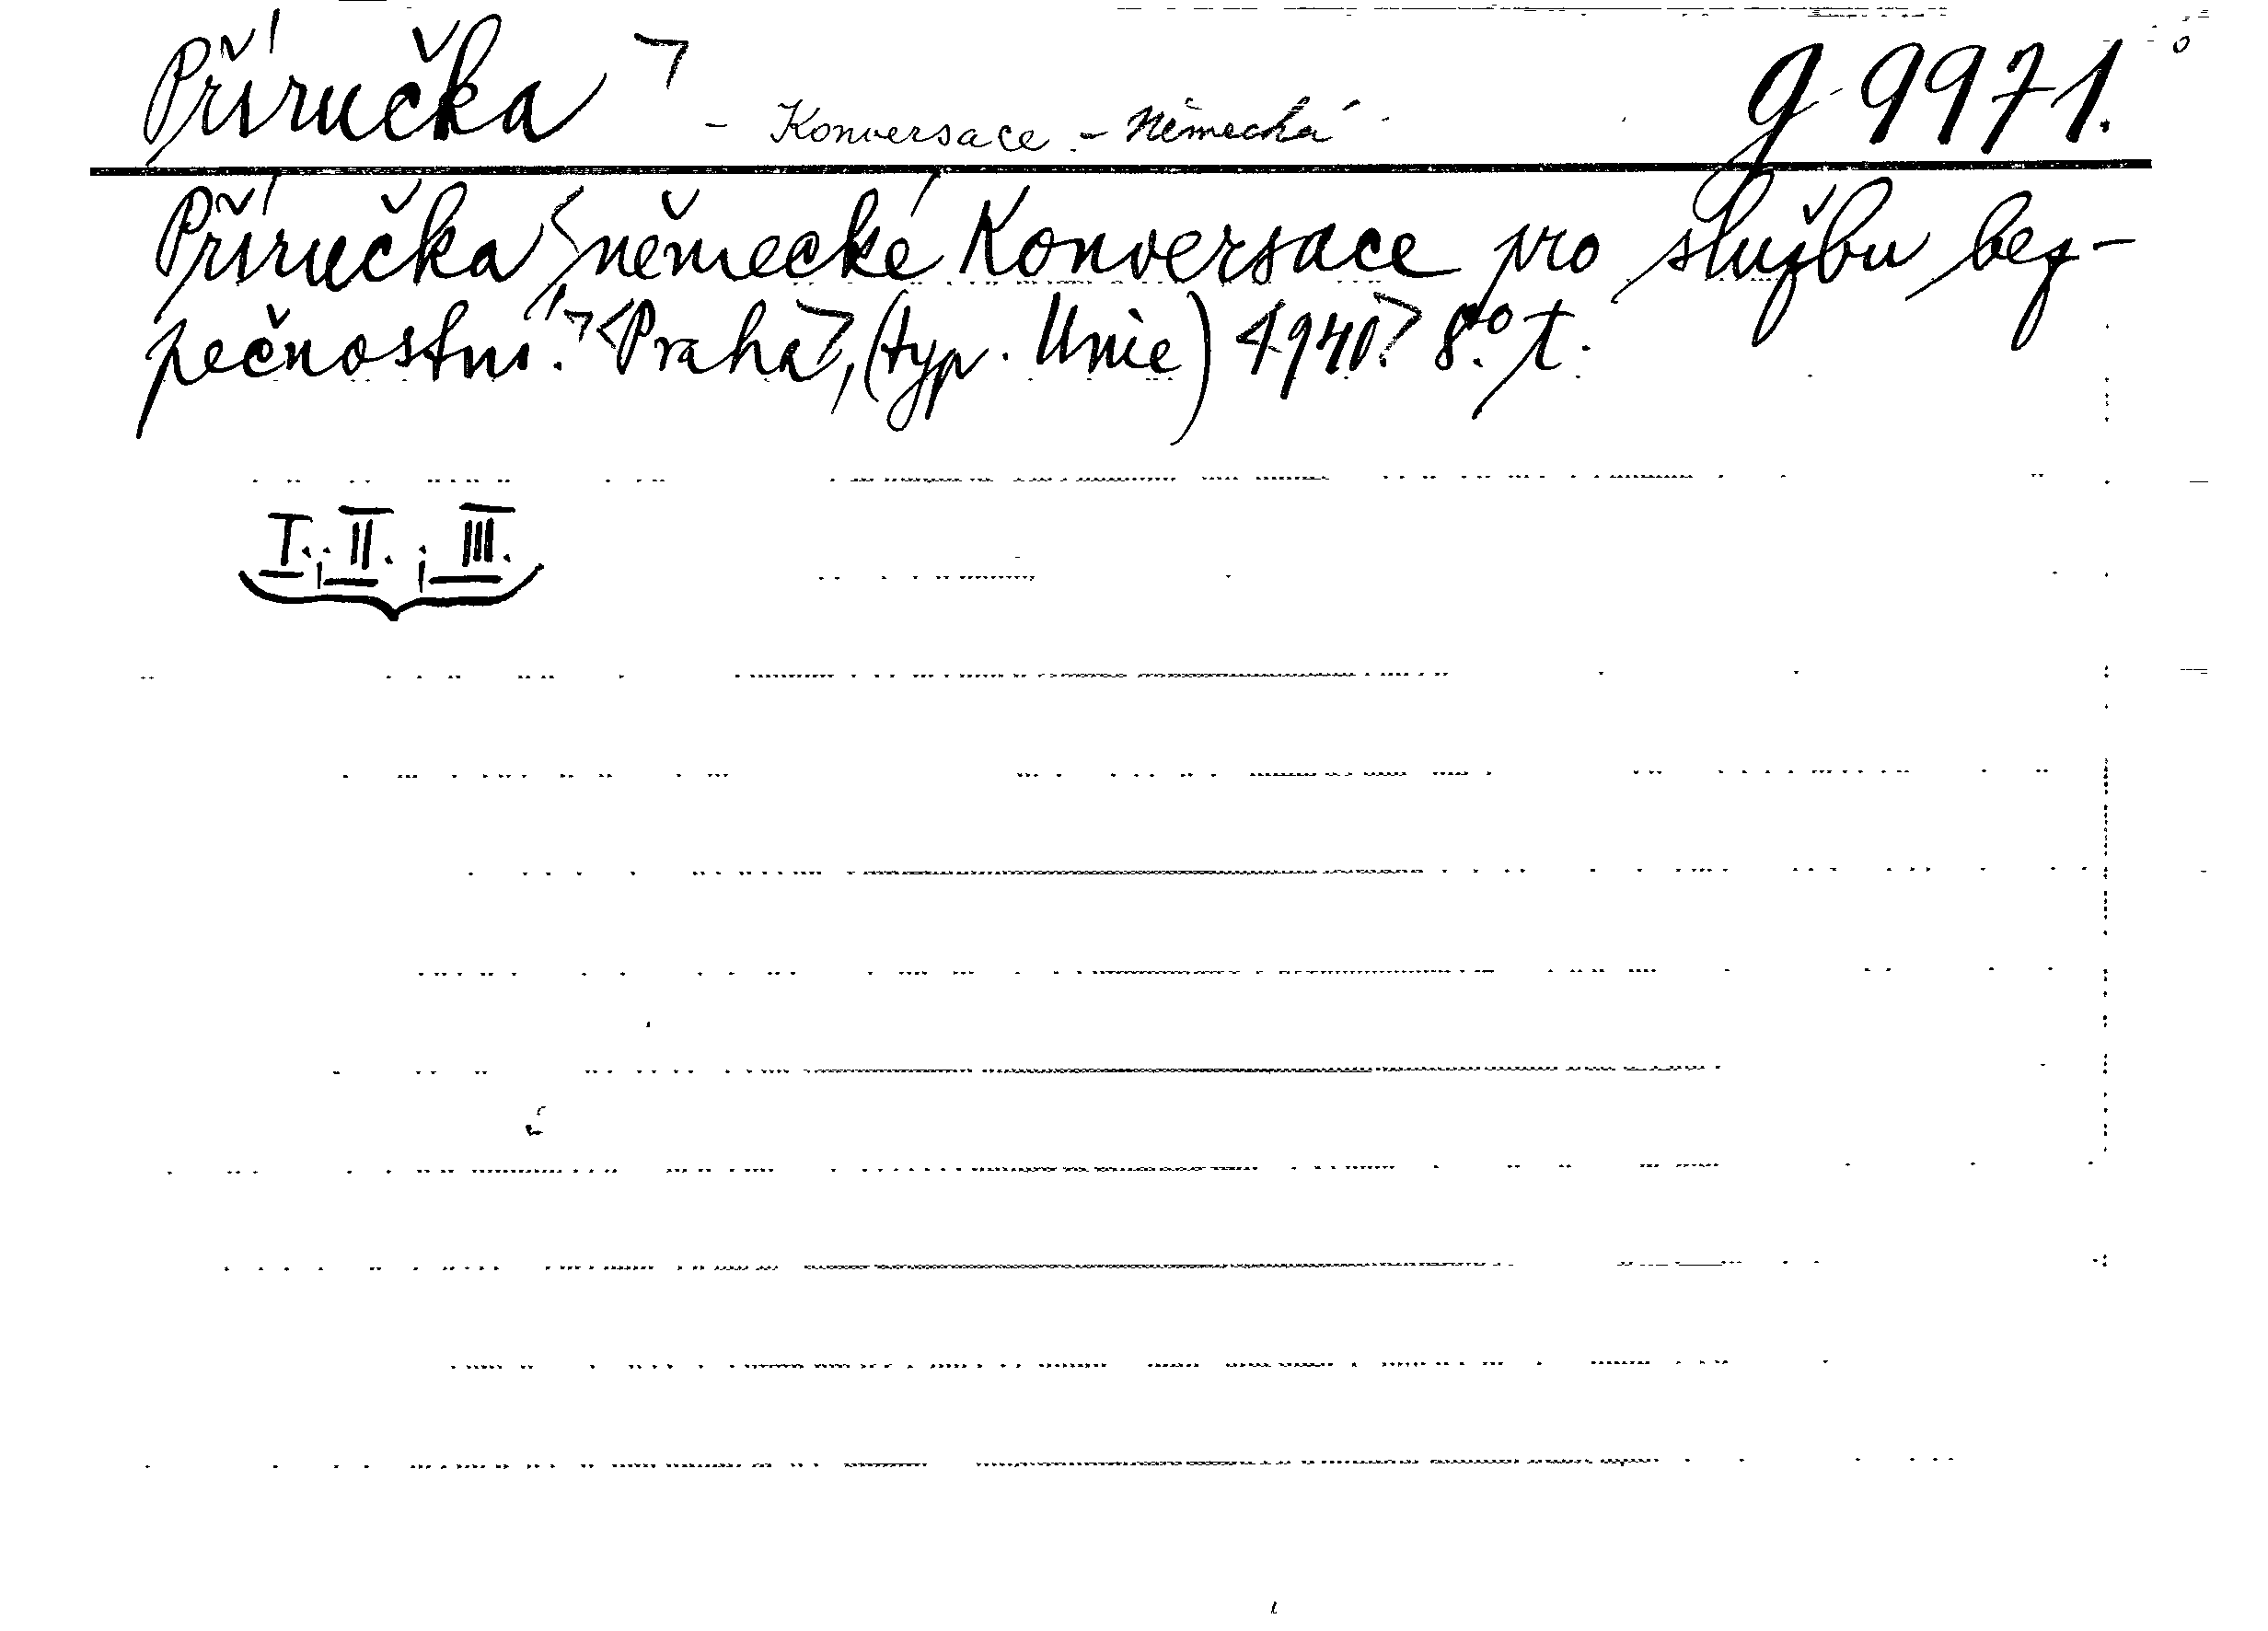 Příručka ⌝ - Konversace - Německá g 9971.
Příručka <německé Konversace pro službu bez-
pečnostní.⌝ <Praha>, (typ. Unie) <1940.> 8.° t.
I.; II.; III.